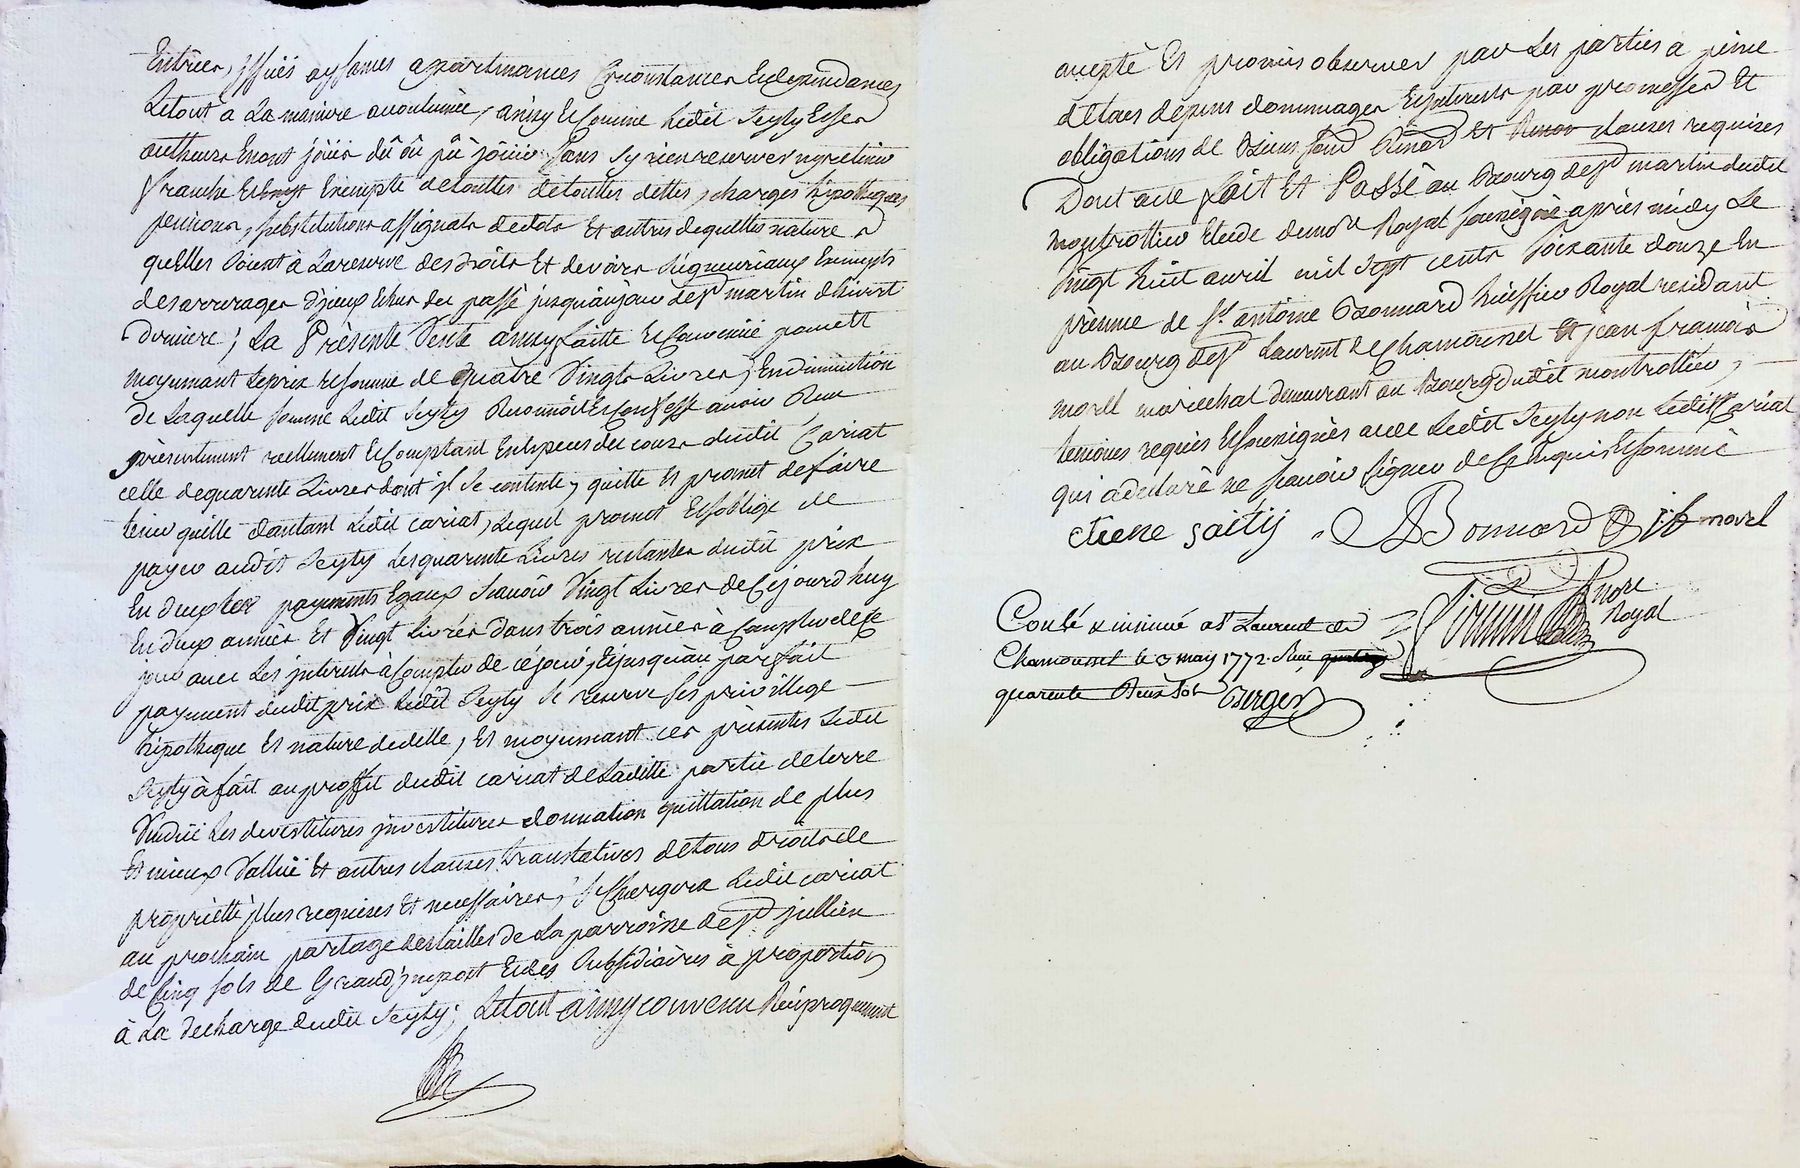 Entrées, yssües aysances appartenances Circonstances Et dependances
Le tout a La maniere accoutumée, ainsy Et Comme Ledit Seyty Et ses
autheurs En ont joüir dû ou pû joüir Sans sy rien reserver ny retenir
franche Et Exempte de touttes de touttes dettes, charges hipotheques
pensions, substitutions assignats de dots Et autres de quelles nature
quelles Soient à La reserve des droits Et devoirs Seigneuriaux Exempts
des arrerages d'jceux Echus du passé jusquàujour de st martin d'hivert
derniere; La Présente Vente ainsy faitte Et Convenüe pour Et
moyennant Le prix Et somme de Quatre Vingts Livres, En diminution
de Laquelle somme Ledit Seyty Reconnoit Et Confesse avoir Reçu
présentement réellement Et Comptant En Especes du cours dudit Cariat
celle de quarente Livres dont jl Se contente, quitte Et promet de faire
tenir quitte dautant Ledit cariat, Lequel promet Et soblige de
payer audit Seyty Les quarente Livres restantes dudit prix
En deux payements Egaux Scavoir Vingt Livres de Cejourdhuy
En deux années Et Vingt Livres dans trois années à Compter de Ce
jour avec Les jnterests à Compter de cejour, Et jusquàu parfait
payement dudit prix Ledit Seyty Se reserve Ses privillege
hipotheque Et nature dedelle, Et moyennant ces présentes Ledit
Seyty à fait au proffit dudit cariat de Laditte partie de terre
Vendüe Les devestitures jnvestitures donnation quittation de plus
Et mieux Vallüe Et autres clauses translatives de tous droits de
propriétté plus requises Et necessaires, Se Chargera Ledit cariat
au prochain partage des tailles de La parroisse de st jullien
de Cinq sols de Grand jmpost Et des Subsidiaires à proportion
à La decharge dudit Seyty; Le tout ainsy convenu Réciproquement
accepté Et promis observer par Les parties a peine
de tous depens dommages Et jnterests par promesses Et
obligations de Biens Clauses requises
Dont acte fait Et Passé au Bourg de st martin dudit
montrottier Etude du nore Royal soussigné après midy Le
Vingt huit avril mil Sept cents soixante douze En
présence de sr antoine Bonnard huissier Royal residant
au Bourg de st Laurent de Chamousset Et jean françois
morel marechal demeurant au Bourg dudit montrottier,
temoins requis Et soussignés avec Ledit Seyty non Ledit Cariat
qui a declaré ne scavoir signer de Ce Enquis Et sommé
etiene saitij Bonnard jf morel
nore
Royal
Conlé & insinué a st Laurent de
Chamousset le 3 may 1772. Reçu
quarente Deux sols Berger